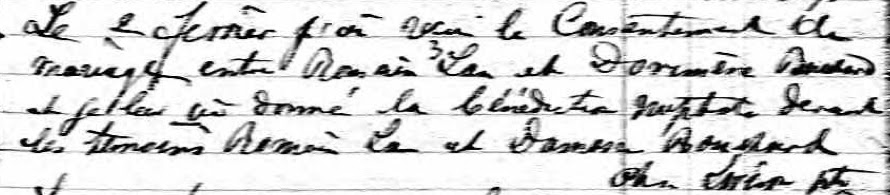 Le 2 Fevrier j'ai reçu le Consentement de
mariage entre Romain 3 Lau et Dorimène Bouchard
et je leur ai donné la bénédiction nuptiale devant
les temoins Romain Lau et Damase Bouchard
ptr